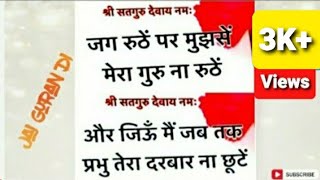 श्री सतगुरु देवाय नमः
जग रुठें पर मुझसें
मेरा गुरु ना रुठें
श्री सतगुरु देवाय नमः
और जिऊँ मैं जब तक
प्रभु तेरा दरबार ना छूटें
JAI GURAN DI
3K+
Views
SUBSCRIBE